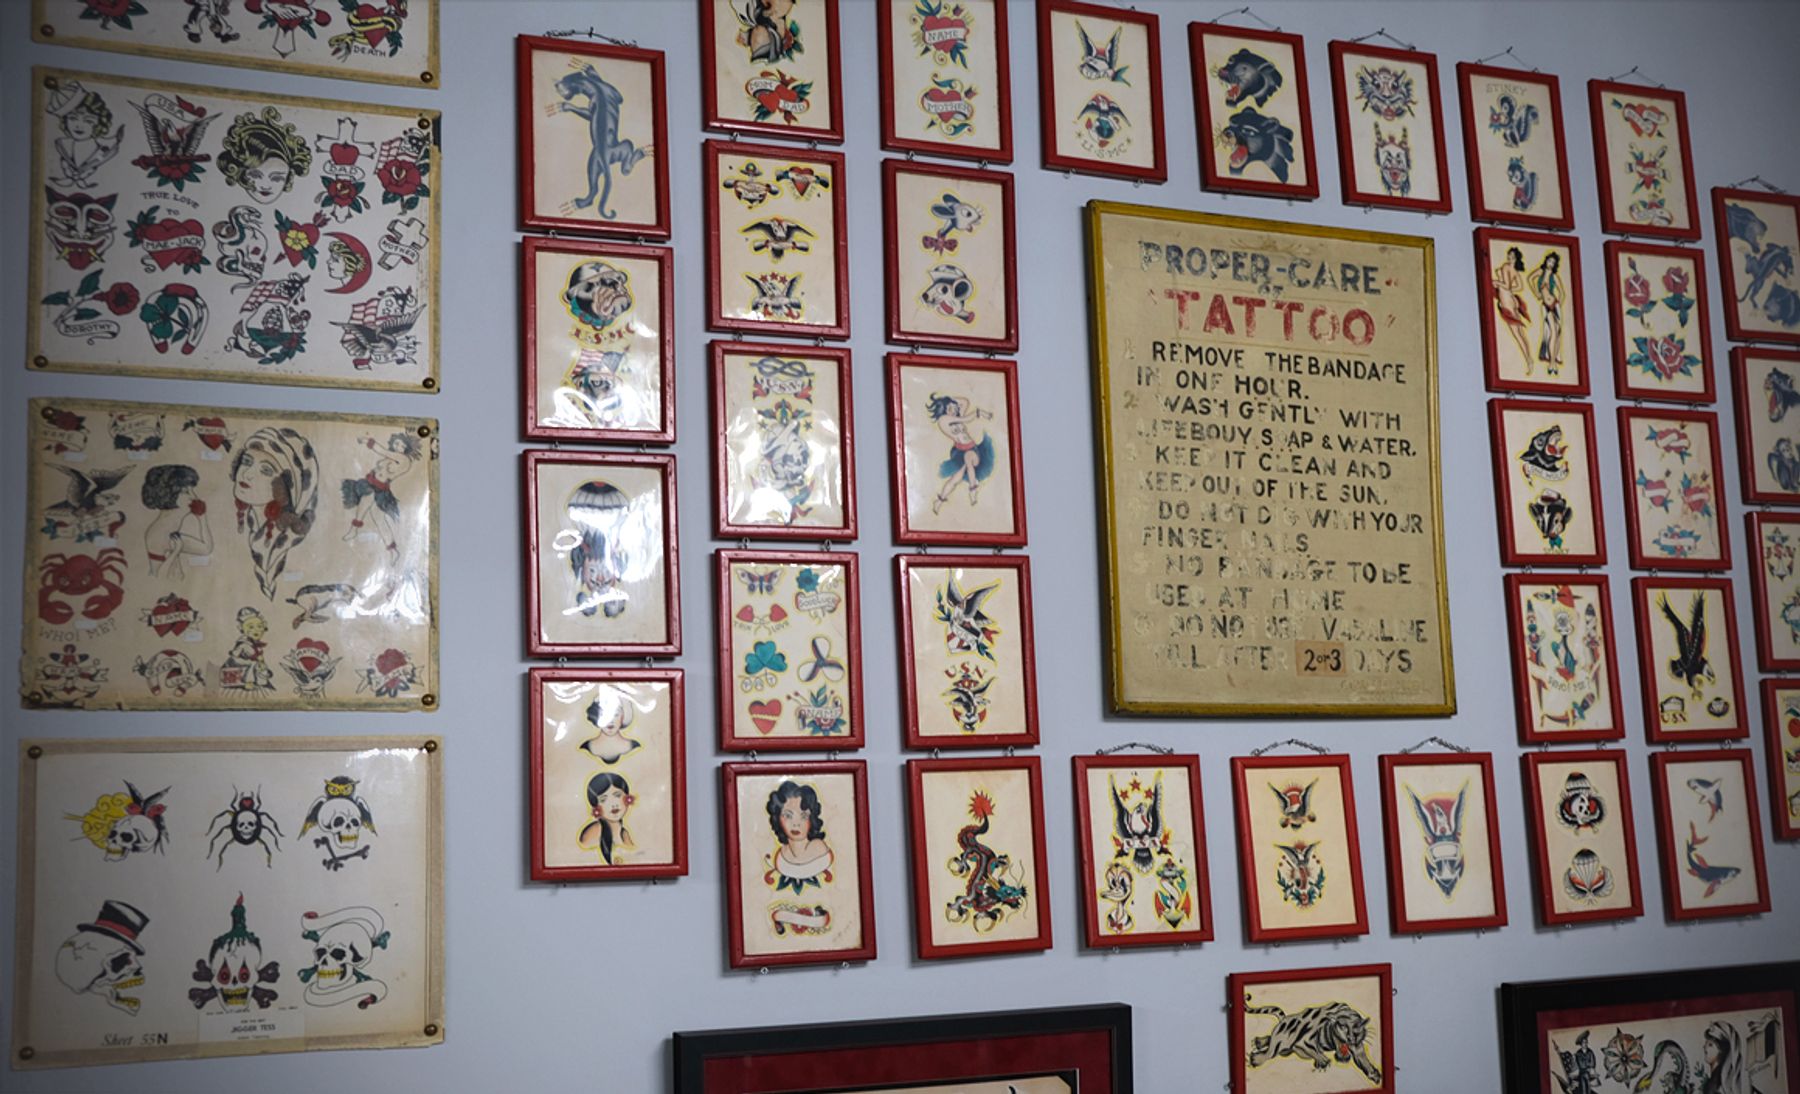 DEATH
USA
DAD
TRUE LOVE
TO
MAE-JACK
MOTHER
DOROTHY
USA
NAME
WHO! ME?
NAME
MOTHER
Sheet 55N
JIGGER TESS
U.S.M.C
MOM
DAD
U.S.N.
TRUE LOVE
GOOD LUCK
13
PAT
NAME
NAME
MOTHER
USA
U.S.M.C.
U.S.N
U.S.A
STINKY
PROPER-CARE
OF
"TATTOO"
1. REMOVE THE BANDAGE
IN ONE HOUR.
2. WASH GENTLY WITH
LIFEBOUY SOAP & WATER.
3. KEEP IT CLEAN AND
KEEP OUT OF THE SUN.
4. DO NOT DIG WITH YOUR
FINGER NAILS
5. NO BANDAGE TO BE
USED AT HOME
6. DO NOT USE VASALINE
TILL AFTER 2 or 3 DAYS
WHO! ME?
USN
U.S.N